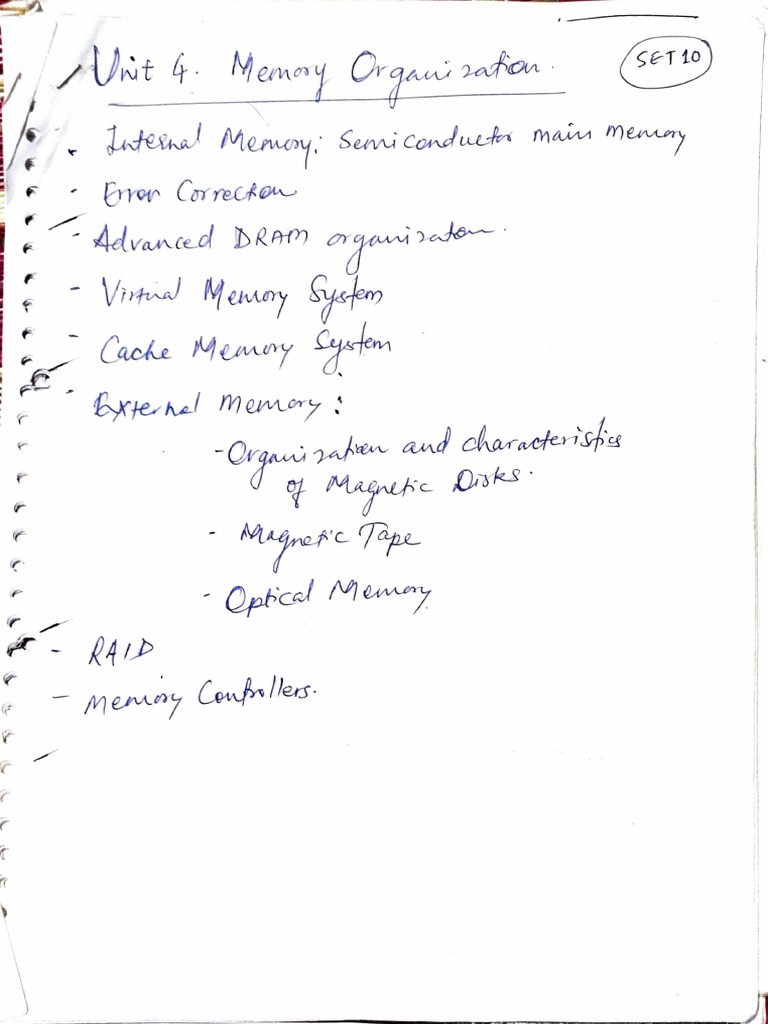 Unit 4. Memory Organization.
SET 10
- Internal Memory: Semiconductor main memory
- Error Correction
- Advanced DRAM organization.
- Virtual Memory System
- Cache Memory System
- External Memory:
- Organization and characteristics
of Magnetic Disks.
- Magnetic Tape
- Optical Memory
- RAID
- Memory Controllers.